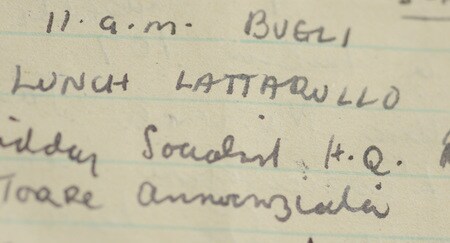 11.a.m. BUGLI
LUNCH LATTARULLO
idday Socialist H.Q.
Torre Annunziata